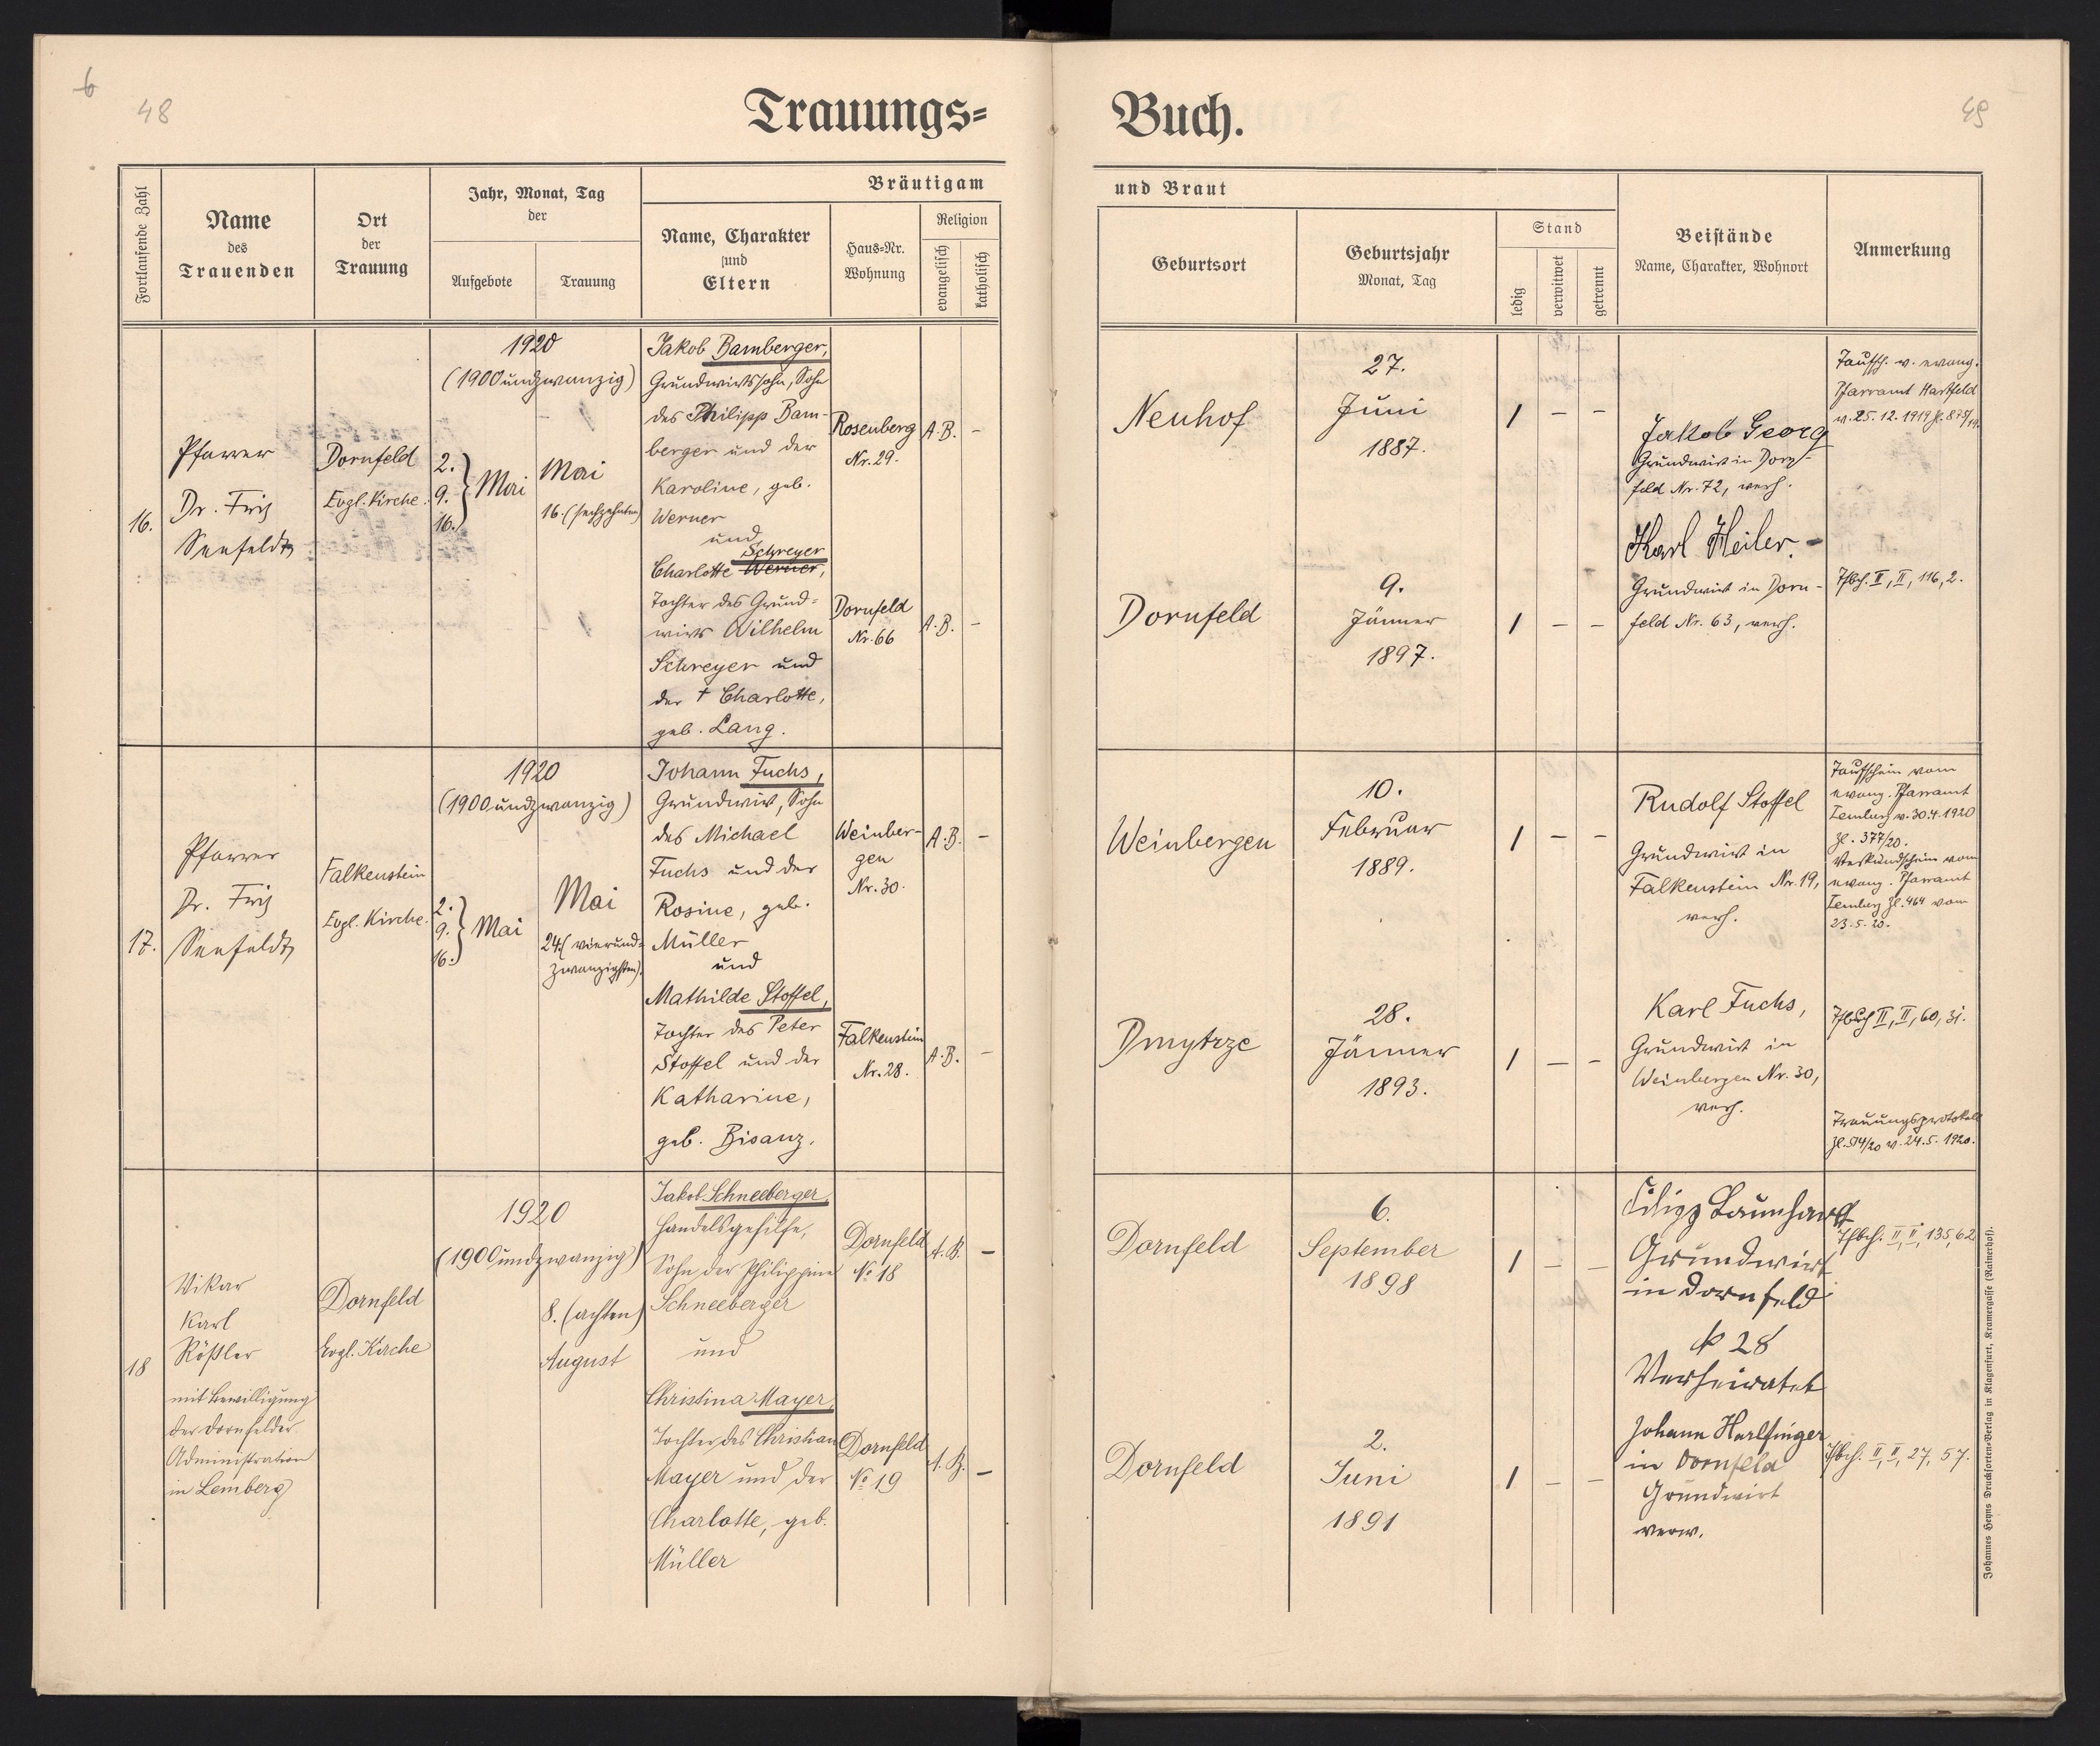 6
48
Trauungs=
Fortlaufende Zahl
Name
des
Trauenden
Ort
der
Trauung
Jahr, Monat, Tag
der
Aufgebote
Trauung
Bräutigam
Name, Charakter
und
Eltern
Haus=Nr.
Wohnung
Religion
evangelisch
katholisch
16.
Pfarrer
Dr. Fritz
Seefeldt
Dornfeld
Evgl. Kirche.
1920
(1900 undzwanzig)
2.
9. Mai
16.
Mai
16. (sechzehnten)
Jakob Bamberger,
Grundwirtssohn, Sohn
des Philipp Bam-
berger und der
Karoline, geb.
Werner
und
Schreyer
Charlotte Werner,
Tochter des Grund=
wirts Wilhelm
Schreyer und
der † Charlotte,
geb. Lang.
Rosenberg
Nr. 29.
A.B. -
Dornfeld
Nr. 66
A.B. -
17.
Pfarrer
Dr. Fritz
Seefeldt
Falkenstein
Evgl. Kirche.
1920
(1900 undzwanzig)
2.
9. Mai
16.
Mai
24. (vierund=
zwanzigsten)
Johann Fuchs,
Grundwirt, Sohn
des Michael
Fuchs und der
Rosine, geb.
Müller
und
Mathilde Stoffel,
Tochter des Peter
Stoffel und der
Katharine,
geb. Bisanz.
Weinber-
gen
Nr. 30.
A.B. -
Falkenstein
Nr. 28.
A.B. -
18
Vikar
Karl
Rößler
mit Bewilligung
der Dornfelder
Administration
in Lemberg
Dornfeld
Evgl. Kirche
1920
(1900 undzwanzig)
8. (achten)
August
Jakob Schneeberger,
Handelsgehilfe,
Sohn der Philippine
Schneeberger
und
Christina Mayer,
Tochter des Christian
Mayer und der
Charlotte, geb.
Müller
Dornfeld
No 18
A.B. -
Dornfeld
No 19
A.B. -
49
Buch.
und Braut
Geburtsort
Geburtsjahr
Monat, Tag
Stand
ledig
verwitwet
getrennt
Beistände
Name, Charakter, Wohnort
Anmerkung
Neuhof
27.
Juni
1887.
1 - -
Jakob Georg
Grundwirt in Dorn-
feld Nr. 72, verh.
Taufsch. v. evang.
Pfarramt Hartfeld
v. 25.12.1919
Dornfeld
9.
Jänner
1897.
1 - -
Karl Heiler. -
Grundwirt in Dorn-
feld Nr. 63, verh.
Tfbch. II, II, 116, 2.
Weinbergen
10.
Februar
1889.
1 - -
Rudolf Stoffel
Grundwirt in
Falkenstein Nr. 19,
verh.
Taufschein vom
evang. Pfarramt
Lemberg v. 30.4.1920
Zl. 377/20.
Verkündschein vom
evang. Pfarramt
Lemberg Zl. 464 vom
23.5.20.
Dmytrze
28.
Jänner
1893.
1 - -
Karl Fuchs,
Grundwirt in
Weinbergen Nr. 30,
verh.
Tfbch II, II, 60, 31.
Trauungsprotokoll
v. 24.5.1920.
Dornfeld
6.
September
1898
1 - -
Filipp Launhardt
Grundwirt
in Dornfeld
№ 28
Verheiratet
Tfbch. II, II, 135, 62
Dornfeld
2.
Juni
1891
1 - -
Johann Harlfinger
in Dornfeld
Grundwirt
verw.
Tfbch. II, II, 27, 57.
Johannes Heyns Drucksorten=Verlag in Klagenfurt, Kramergasse (Rainerhof).